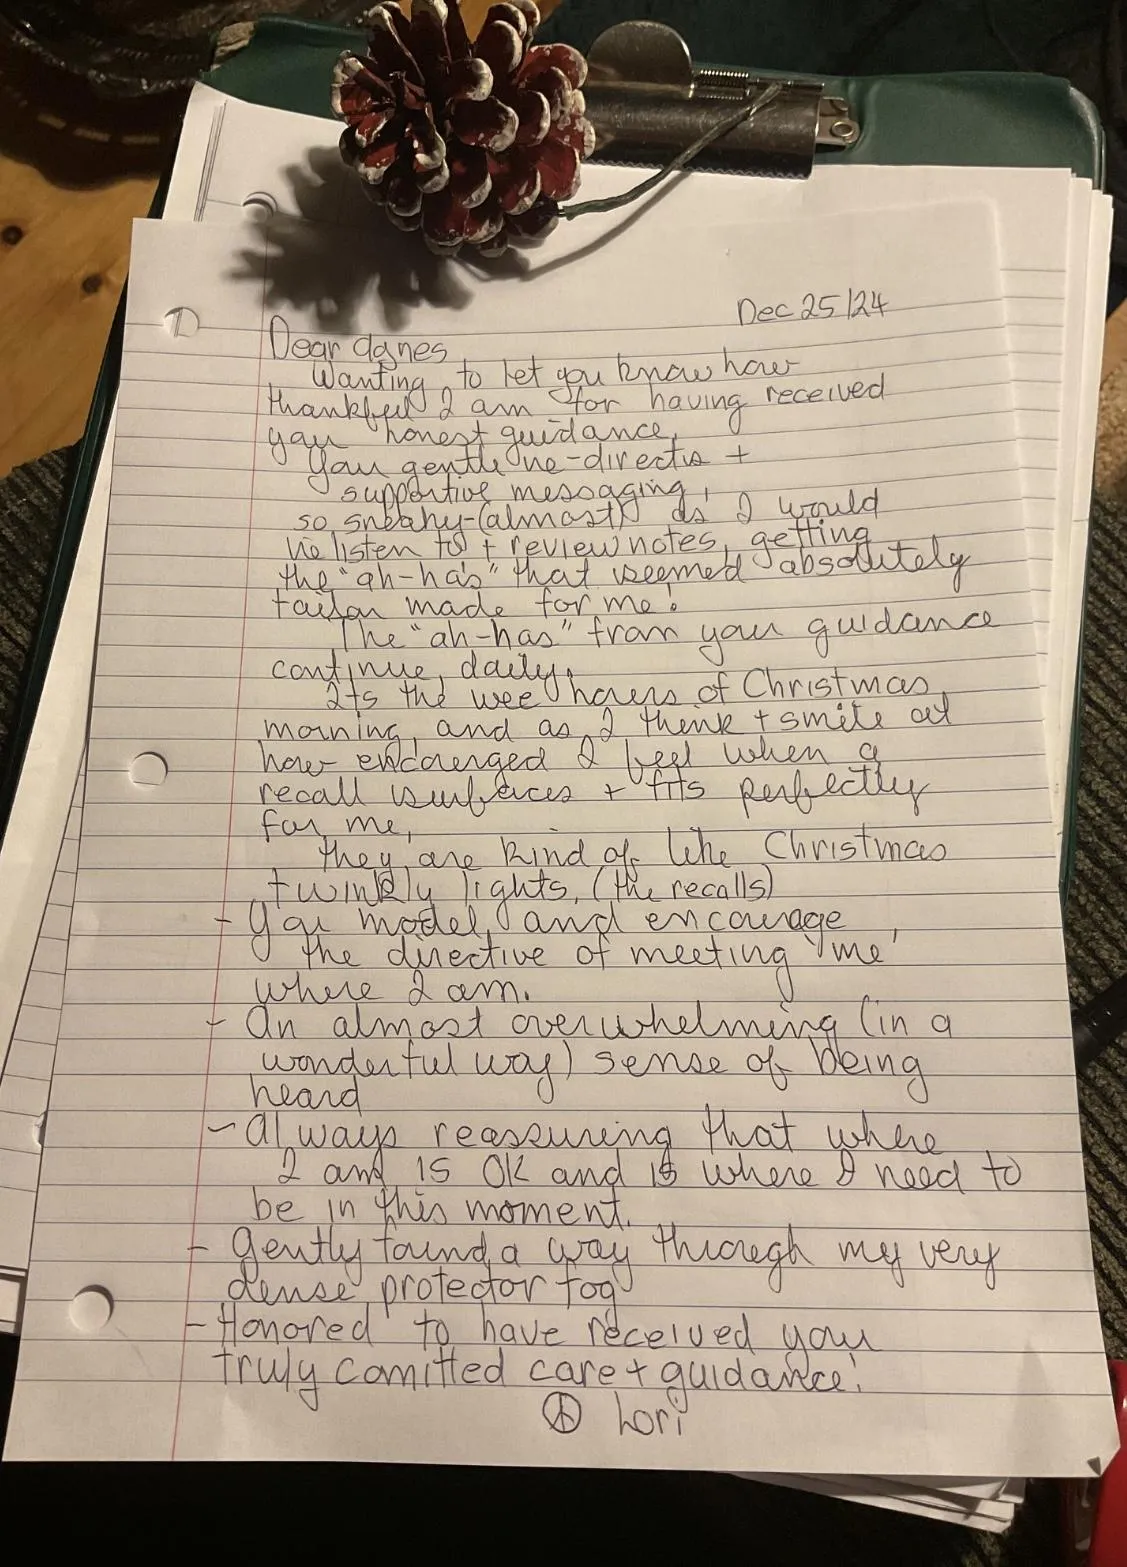 Dec 25/24
Dear Agnes,
Wanting to let you know how
thankful I am for having received
your honest guidance,
Your gentle re-directs +
supportive messaging,
so sneaky-(almost) as I would
re listen to + review notes, getting
the "ah-ha's" that seemed absolutely
tailor made for me!
The "ah-has" from your guidance
continue, daily.
Its the wee hours of Christmas
morning, and as I think + smile at
how encouraged I feel when a
recall surfaces + fits perfectly
for me,
they are kind of like Christmas
twinkly lights, (the recalls)
- You model, and encourage
the directive of meeting 'me'
where I am.
- An almost overwhelming (in a
wonderful way) sense of being
heard
- Always reassuring that where
I am is OK and is where I need to
be in this moment.
- Gently found a way through my very
dense protector fog
- Honored to have received your
truly comitted care + guidance!
☮ Lori